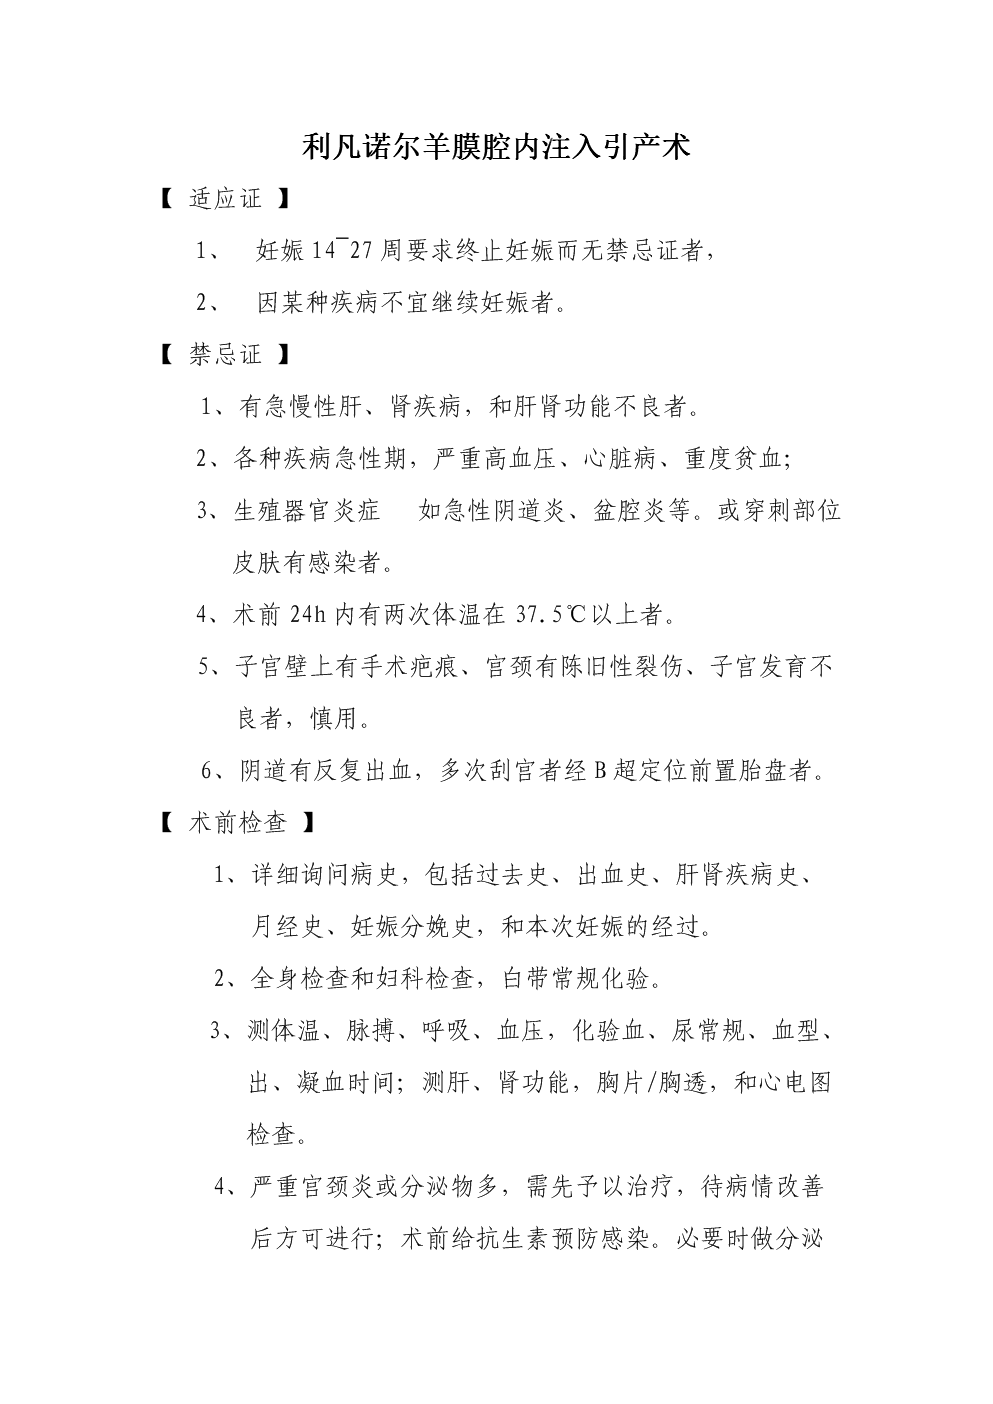 利凡诺尔羊膜腔内注入引产术
【 适应证 】
1、 妊娠14¯27周要求终止妊娠而无禁忌证者，
2、 因某种疾病不宜继续妊娠者。
【 禁忌证 】
1、有急慢性肝、肾疾病，和肝肾功能不良者。
2、各种疾病急性期，严重高血压、心脏病、重度贫血；
3、生殖器官炎症 如急性阴道炎、盆腔炎等。或穿刺部位
皮肤有感染者。
4、术前24h内有两次体温在37.5℃以上者。
5、子宫壁上有手术疤痕、宫颈有陈旧性裂伤、子宫发育不
良者，慎用。
6、阴道有反复出血，多次刮宫者经B超定位前置胎盘者。
【 术前检查 】
1、详细询问病史，包括过去史、出血史、肝肾疾病史、
月经史、妊娠分娩史，和本次妊娠的经过。
2、全身检查和妇科检查，白带常规化验。
3、测体温、脉搏、呼吸、血压，化验血、尿常规、血型、
出、凝血时间；测肝、肾功能，胸片/胸透，和心电图
检查。
4、严重宫颈炎或分泌物多，需先予以治疗，待病情改善
后方可进行；术前给抗生素预防感染。必要时做分泌